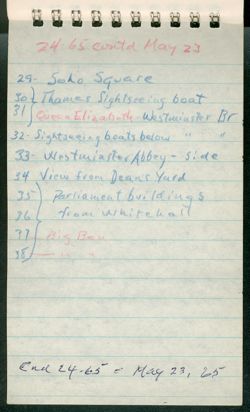 24-65 contd May 23
29- Soho Square
30 Thames Sightseeing boat
31 Queen Elizabeth - Westminster Br
32- Sightseeing boats below " "
33- Westminster Abbey - side
34 View from Deans Yard
35 Parliament buildings
36 from Whitehall
37 Big Ben
38 - " "
End 24-65 = May 23, 65